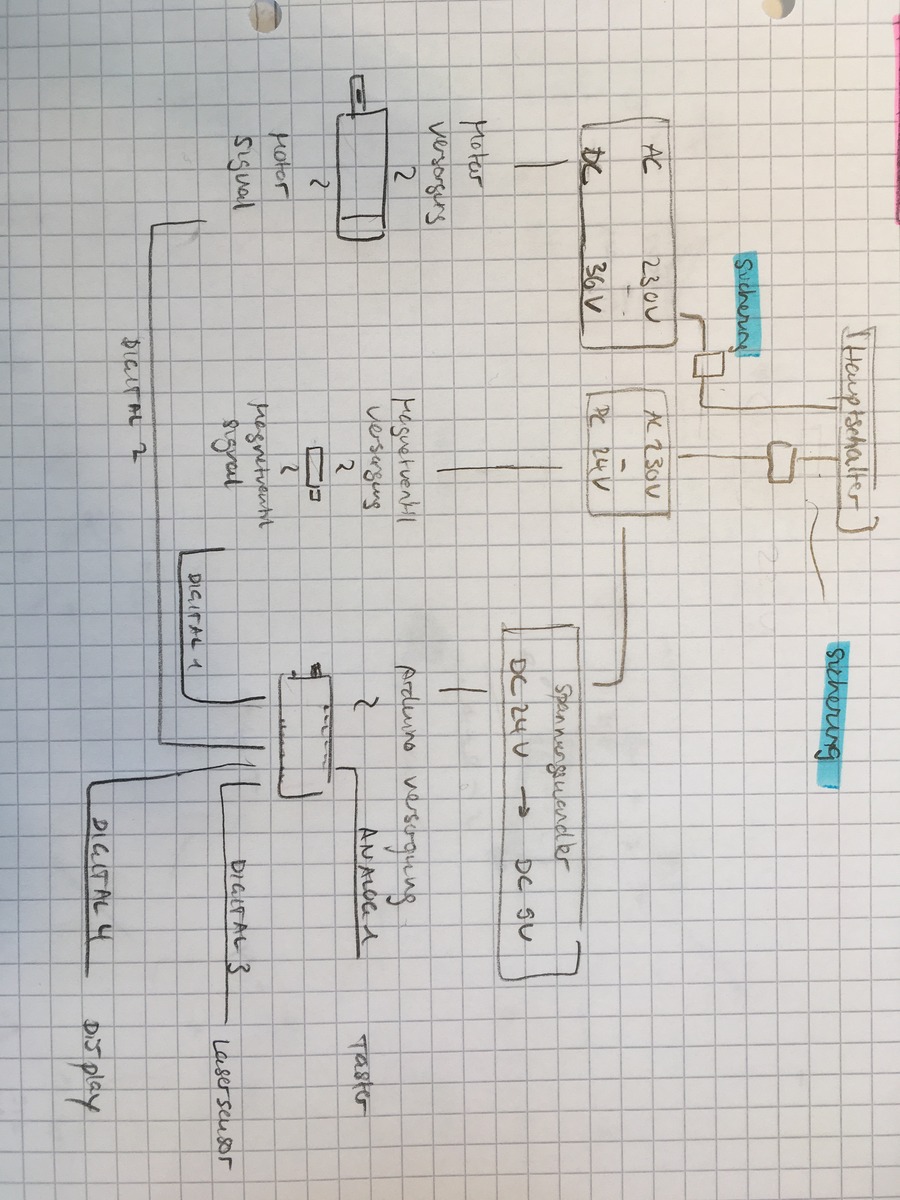 Hauptschalter
sicherung
sicherung
AC 230V
DC 36V
AC 230V
-
DC 24V
Spannungswandler
DC 24V → DC 9V
Motor
versorgung
Magnetventil
versorgung
Arduino versorgung
ANALOG 1
Taster
Motor
Signal
Magnetventil
Signal
DIGITAL 3
Lasersensor
DIGITAL 1
DIGITAL 2
DIGITAL 4
Display